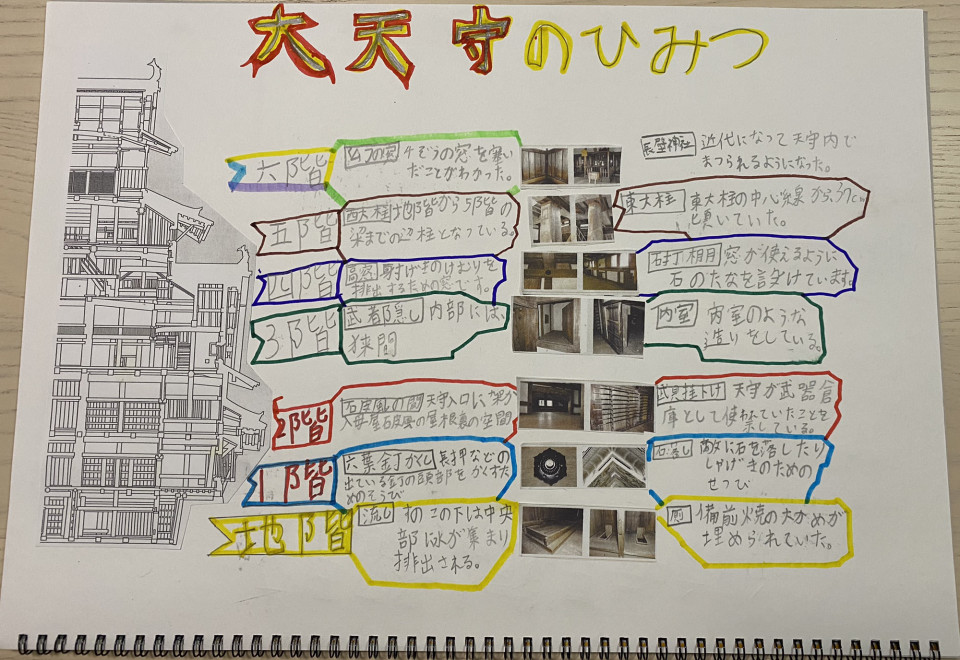 大天守のひみつ
六階
幻の窓 ケぞうの窓を塞い
だことがわかった。
長壁神社 近代になって天守内で
まつられるようになった。
五階
西大柱 地階から5階の
梁までの 柱となっている。
東大柱 東大柱の中心線から37cm
傾いていた。
四階
高窓 射げきのけむりを
排出するための窓です。
石打棚 窓が使えるように
石のたなを設けています。
3階
武者隠し 内部には、
狭間
内室 内室のような
造りをしている。
2階
石 風の間 天守入口に
入母屋 風の屋根裏の空間
武具掛け 天守が武器倉
庫として使 ていたことを
示している。
1階
六葉釘かくし 長押などの
出ている釘の頭部をかくすた
めのそうび
石落し 敵に石を落したり
しゃげきのための
せつび
地階
流し すのこの下は中央
部に水が集まり
排出される。
厠 備前焼の大がめが
埋められていた。